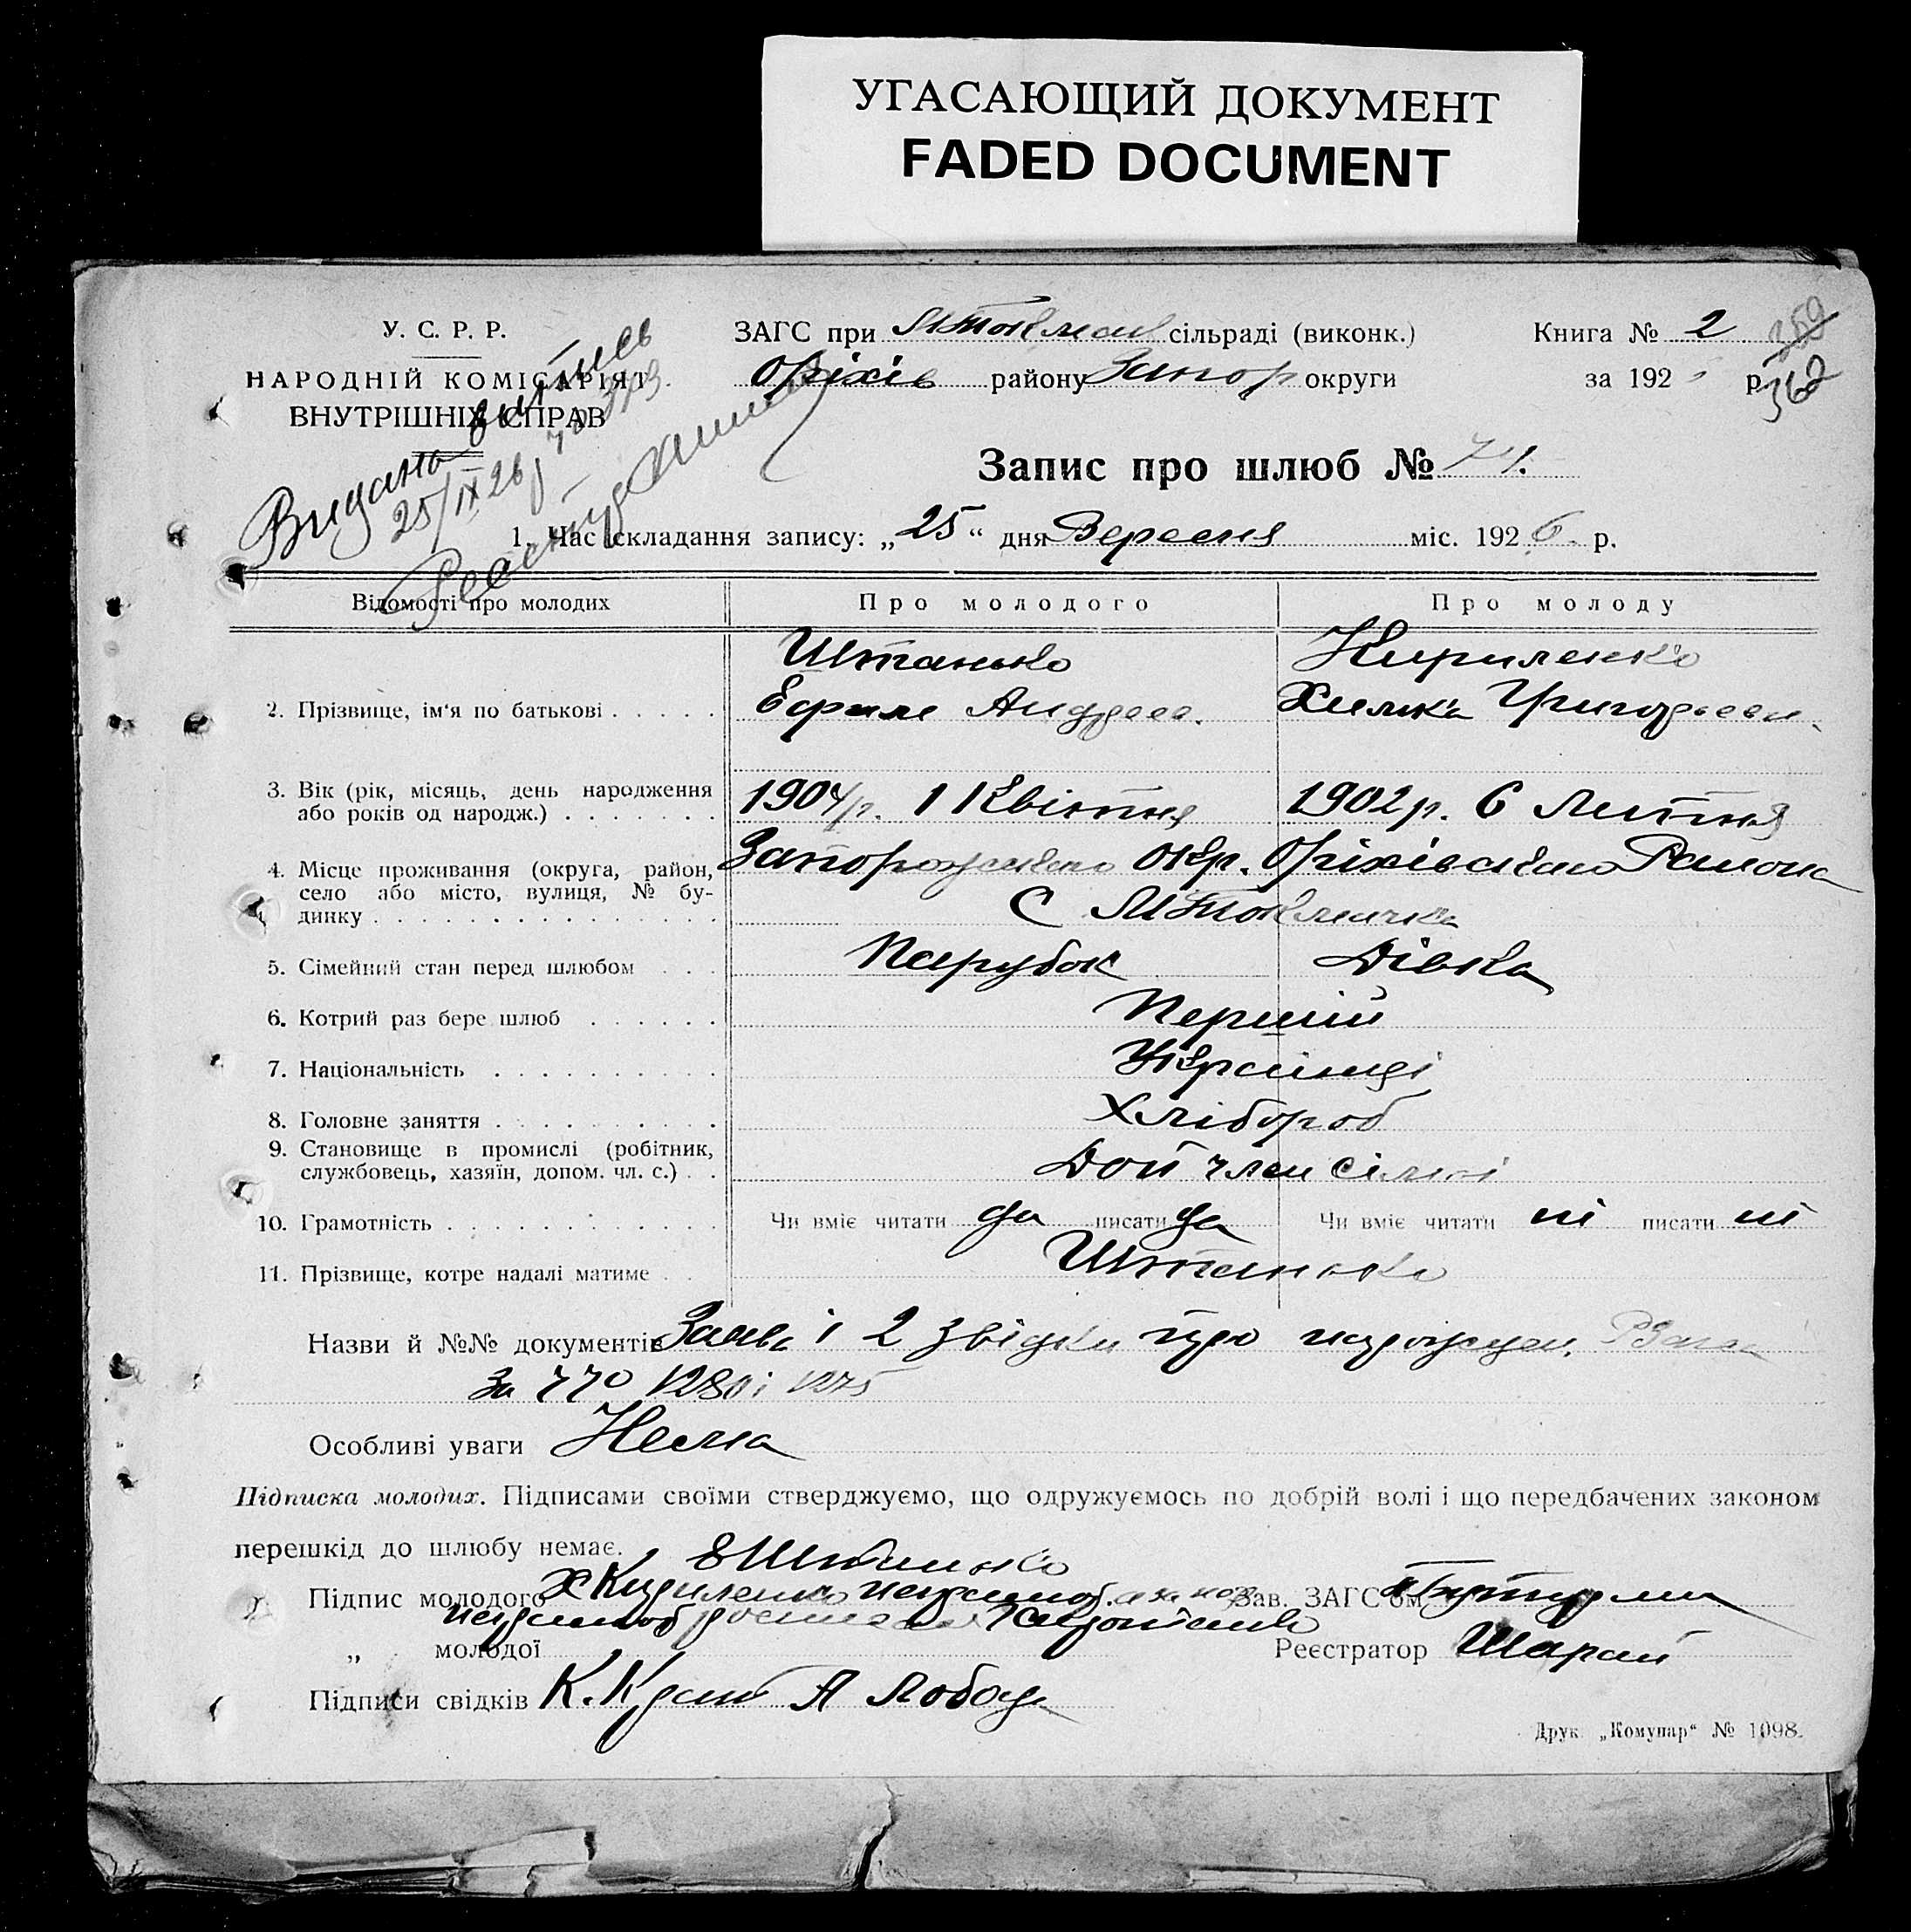 УГАСАЮЩИЙ ДОКУМЕНТ
FADED DOCUMENT
У. С. Р. Р.
НАРОДНІЙ КОМІСАРІЯТ
ВНУТРІШНІХ СПРАВ
Видана выпись
25/IX 26
ЗАГС при М Токмач сільраді (виконк.)
Оріхів району Запор округи
Книга № 2
за 192 р.
359
362
Запис про шлюб № 71.
1. Час складання запису: „25“ дня Вересня міс. 1926 р.
Відомості про молодих
Про молодого
Про молоду
2. Прізвище, ім'я по батькові
Штанько
Ефим Андреев.
Кириленко
Химка Григорьевн.
3. Вік (рік, місяць, день народження
або років од народж.)
1904 р. 1 Квітня
1902 р. 6 Лютня
4. Місце проживання (округа, район,
село або місто, вулиця, № бу-
динку
Запорожского Окр. Оріхівського Района
С М Токмачка
5. Сімейний стан перед шлюбом
Парубок
Дівка
6. Котрий раз бере шлюб
Перший
7. Національність
Українці
8. Головне заняття
Хлібороб
9. Становище в промислі (робітник,
службовець, хазяїн, допом. чл. с.)
Доп член сімї
10. Грамотність
Чи вміє читати да писати да
Чи вміє читати ні писати ні
11. Прізвище, котре надалі матиме
Штанько
Назви й №№ документів Заява і 2 звідки про нарожден.
За 770 1280 і 1275
Особливі уваги Нема
Підписка молодих. Підписами своїми стверджуємо, що одружуємось по добрій волі і що передбачених законом
перешкід до шлюбу немає.
Е Штанько
Підпис молодого Х Кириленко неграмот.
Зав. ЗАГС'ом
неграмот
„ молодої
Реєстратор Шарай
Підписи свідків К. Крат А Лобода
Друк. „Комунар“ № 1098.